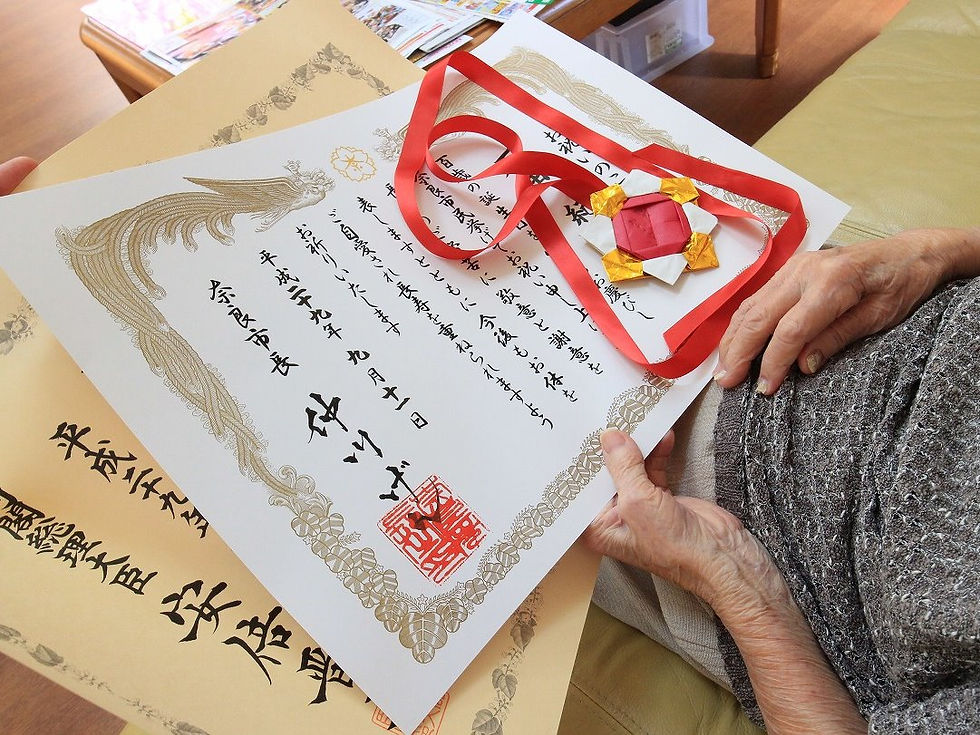 お祝いの
百歳の誕生
お慶び
奈良市民挙げてお祝い申し上げ
敬意と謝意を
表しますとともに 今後もお体を
ご自愛され長寿を重ねられますよう
お祈りいたします
平成二十九年 九月十一日
奈良市長 仲川げん
平成二十九年
閣総理大臣 安倍晋